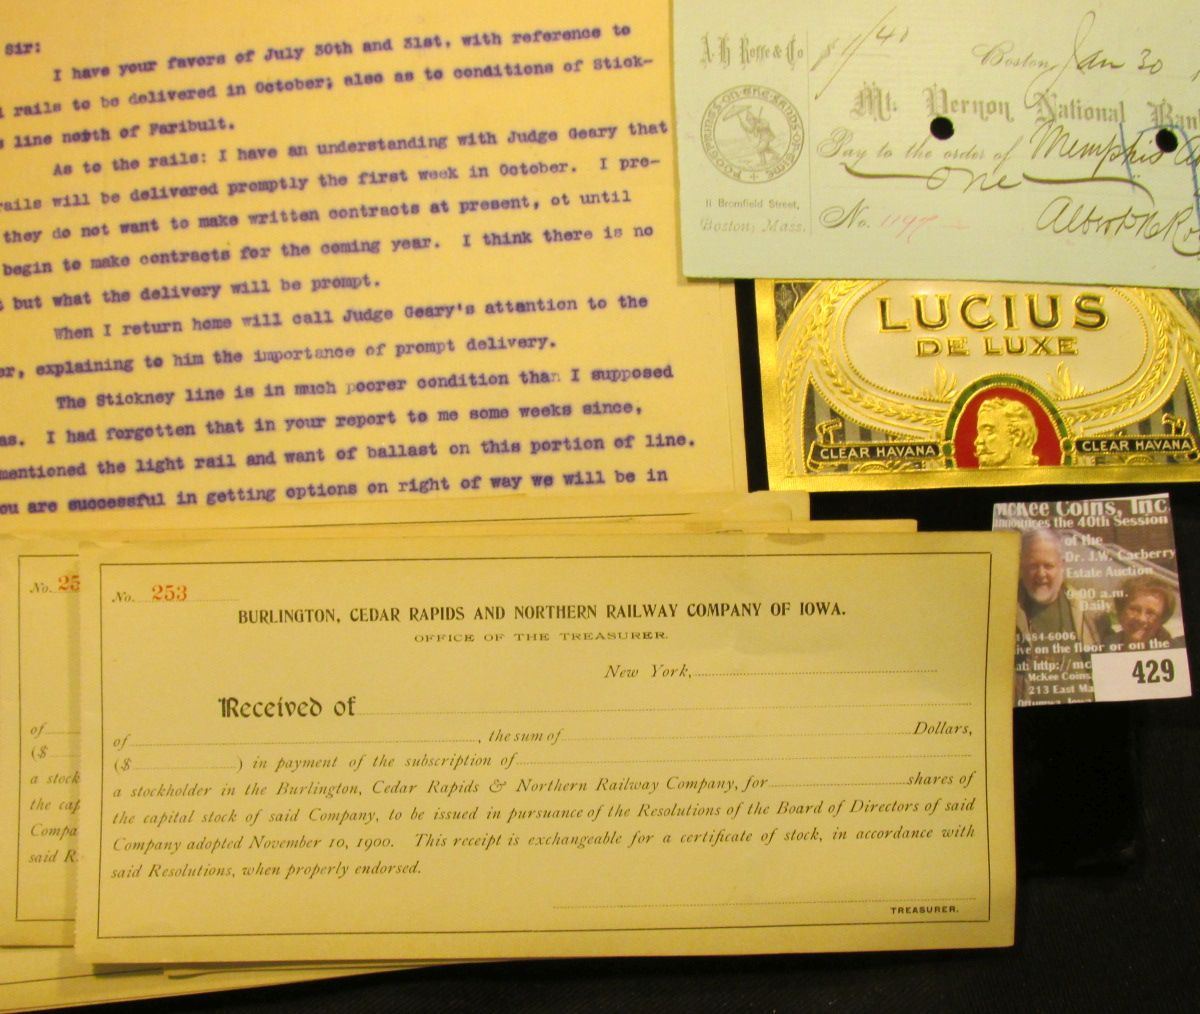 Sir:
I have your favors of July 30th and 31st, with reference to
rails to be delivered in October; also as to conditions of Stick-
line north of Faribult.
As to the rails: I have an understanding with Judge Geary that
rails will be delivered promptly the first week in October. I pre-
they do not want to make written contracts at present, ot until
begin to make contracts for the coming year. I think there is no
but what the delivery will be prompt.
When I return home will call Judge Geary's attention to the
er, explaining to him the importance of prompt delivery.
The Stickney line is in much poorer condition than I supposed
as. I had forgotten that in your report to me some weeks since,
mentioned the light rail and want of ballast on this portion of line.
ou are successful in getting options on right of way we will be in
A. H. Roffe & Co
$1/40
Boston, Jan 30
Mt. Vernon National Bank
Pay to the order of Memphis
One
11 Bromfield Street,
Boston, Mass.
No. 1197
LUCIUS
DE LUXE
CLEAR HAVANA
CLEAR HAVANA
McKee Coins, Inc.
announces the 40th Session
of the
Dr. J.W. Carberry
Estate Auction
9:00 a.m.
Daily
1)684-6006
ive on the floor or on the
at: http://mc
McKee Coins
213 East Ma
Ottumwa, Iowa
429
No. 25
of
($
a stock
the cap
Compa
said R
No. 253
BURLINGTON, CEDAR RAPIDS AND NORTHERN RAILWAY COMPANY OF IOWA.
OFFICE OF THE TREASURER.
New York,
Received of
of , the sum of Dollars,
($ ) in payment of the subscription of
a stockholder in the Burlington, Cedar Rapids & Northern Railway Company, for shares of
the capital stock of said Company, to be issued in pursuance of the Resolutions of the Board of Directors of said
Company adopted November 10, 1900. This receipt is exchangeable for a certificate of stock, in accordance with
said Resolutions, when properly endorsed.
TREASURER.